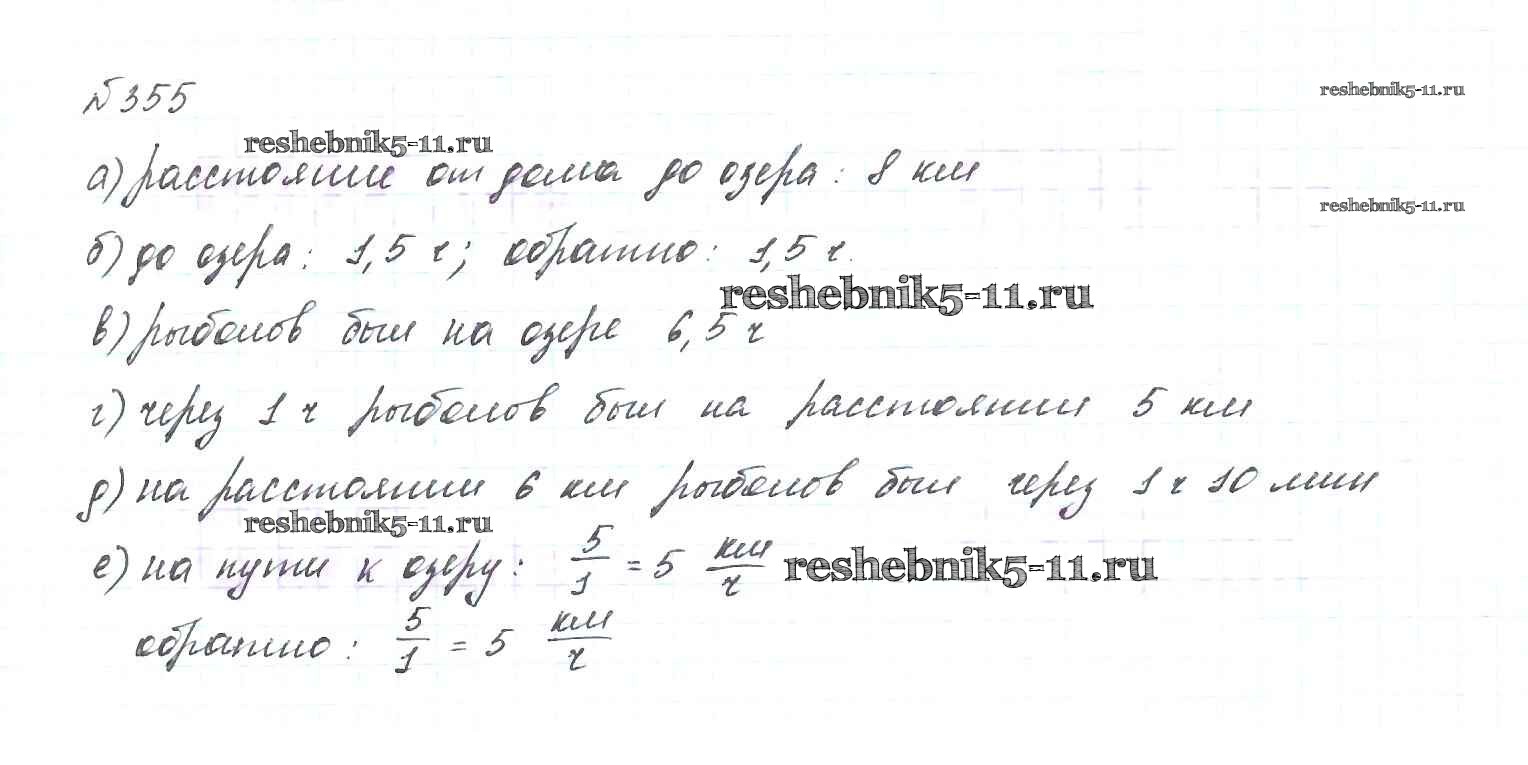 №355
reshebnik5-11.ru
reshebnik5-11.ru
а) расстояние от дома до озера: 8 км
reshebnik5-11.ru
б) до озера: 1,5 ч; обратно: 1,5 ч.
reshebnik5-11.ru
в) рыболов был на озере 6,5 ч
г) через 1 ч рыболов был на расстоянии 5 км
д) на расстоянии 6 км рыболов был через 1 ч 10 мин
reshebnik5-11.ru
е) на пути к озеру: 5/1 = 5 км/ч reshebnik5-11.ru
обратно: 5/1 = 5 км/ч